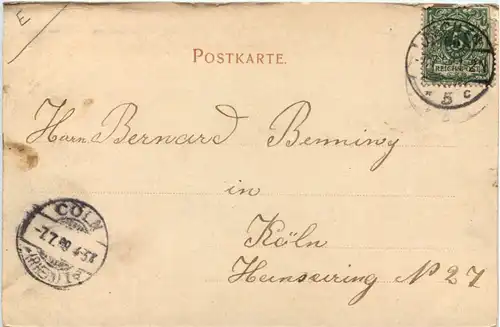 E
POSTKARTE.
5
REICHSPOST
* 5 c
Herrn Bernard Benning
in
CÖLN
7.7.00 4-5N
(RHEIN)
Köln
Hansaring N 27